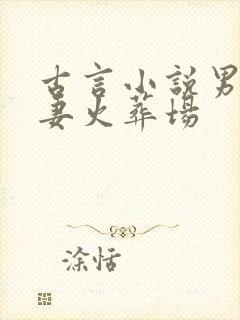 古言小说男
妻火葬场
涂恬